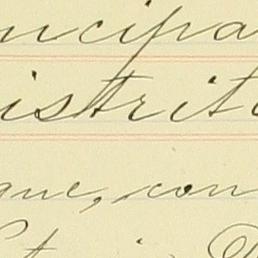 ncipa
istrit
que, con